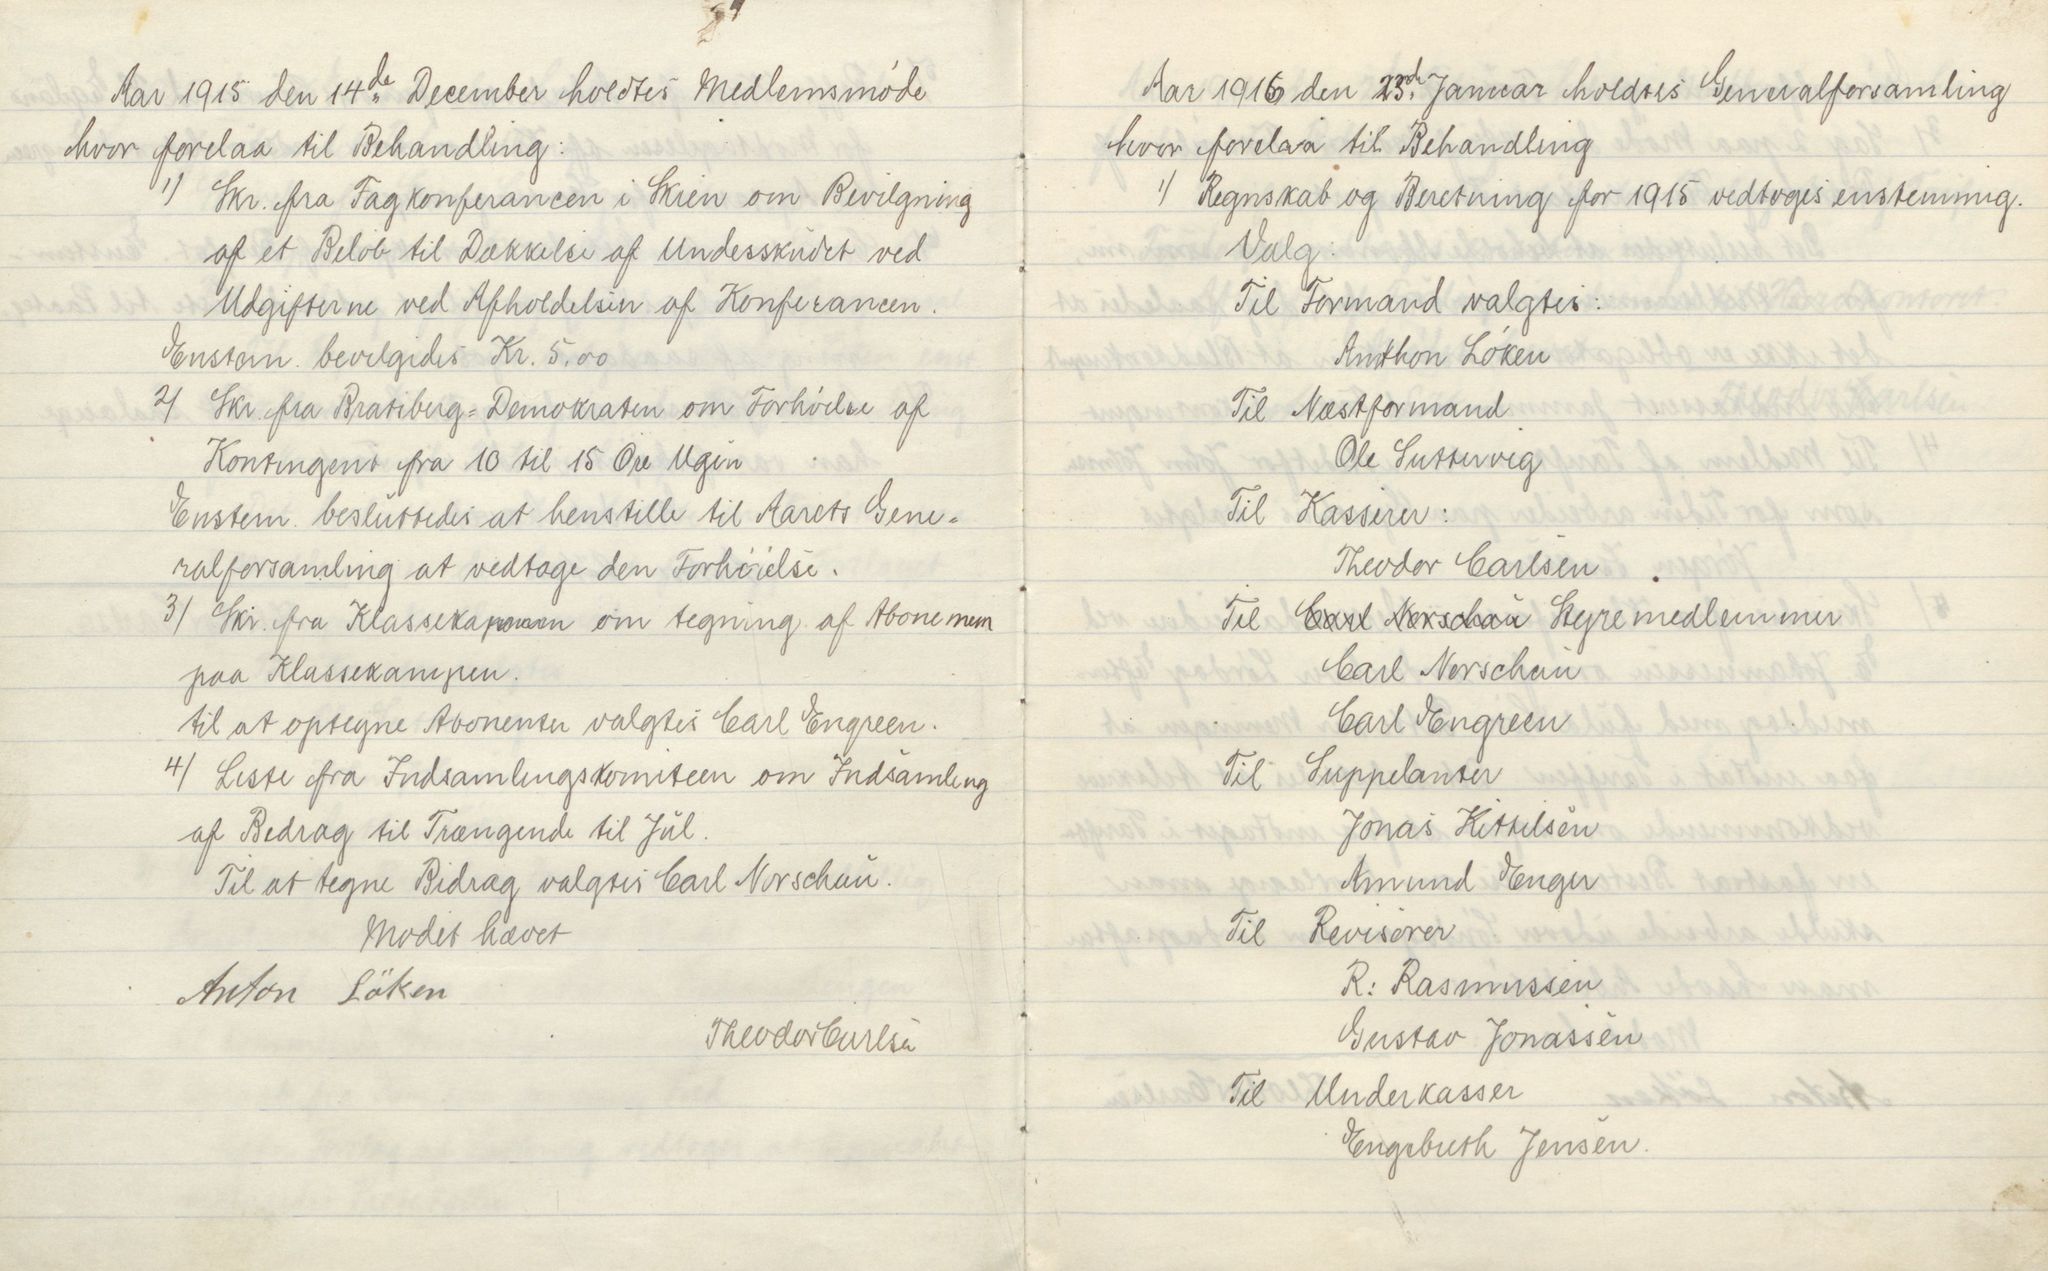 Aar 1915 den 14de December holdtes Medlemsmöde
hvor forelaa til Behandling:
1) Skr. fra Fagkonferancen i Skien om Bevilgning
af et Belöb til Dækkelse af Undesskudet ved
Udgifterne ved Afholdelsen af Konferancen.
Enstem. bevilgides Kr. 5,00
2) Skr. fra Bratsberg=Demokraten om Forhöelse af
Kontingent fra 10 til 15 Öre Ugen
Enstem. besluttedes at henstille til Aarets Gene-
ralforsamling at vedtage den Forhöielse.
3) Skr. fra Klassekampen om tegning af Abonemem
paa Klassekampen.
til at optegne Abonenter valgtes Carl Engreen.
4) Liste fra Indsamlingskomiteen om Indsamling
af Bedrag til Trængende til Jul.
Til at tegne Bidrag valgtes Carl Norschau.
Mödet hævet
Anton Löken
Theodor Carlsen
Aar 1916 den 23de Januar holdtes Generalforsamling
hvor forelaa til Behandling
1) Regnskab og Beretning for 1915 vedtoges enstemmig.
Valg:
Til Formand valgtes:
Anthon Löken
Til Næstformand
Ole Luttervig
Til Kasserer:
Theodor Carlsen
Til Carl Norschau Styremedlemmer
Carl Norschau
Carl Engreen
Til Suppelanter
Jonas Kittilsen
Amund Enger
Til Revisörer
R: Rasmussen
Gustav Jonassen
Til Underkasser
Engebreth Jensen.